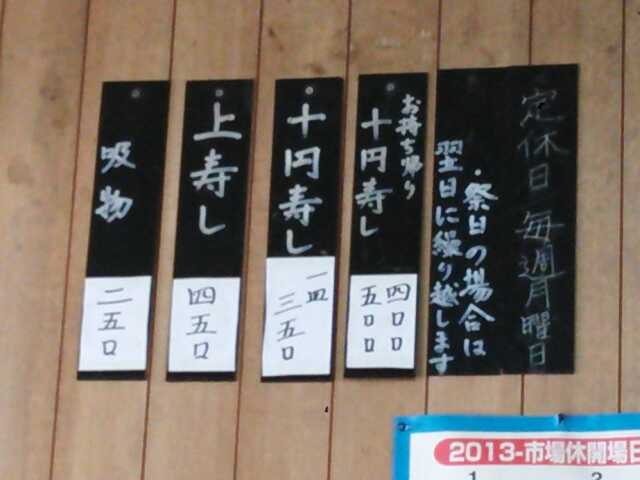 定休日 毎週月曜日
・祭日の場合は
翌日に繰り越します
お持ち帰り
十円寿し
四〇〇
五〇〇
十円寿し
一皿
三五〇
上寿し
四五〇
吸物
二五〇
2013-市場休開場日
1
2